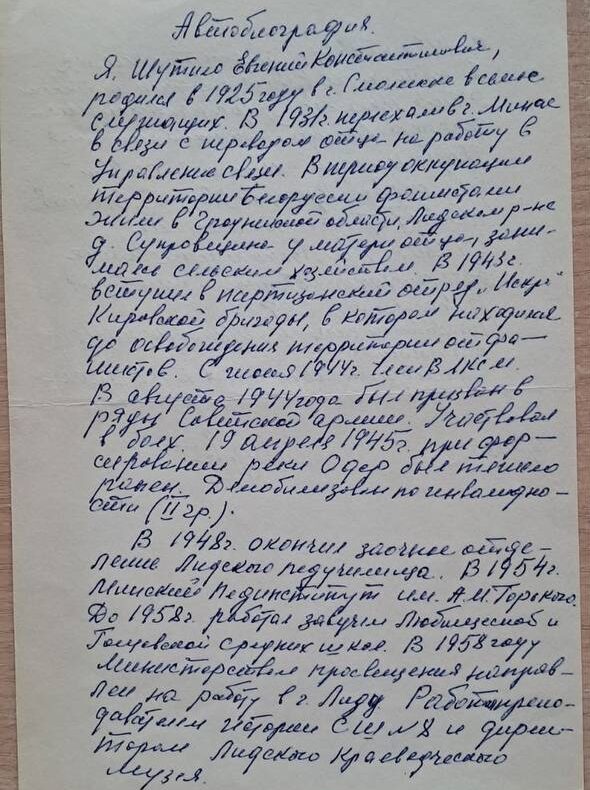 Автобиография.
Я, Шутило Евгений Константинович,
родился в 1925 году в г. Смоленске в семье
служащих. В 1931г. переехали в г. Минск
в связи с переводом отца на работу в
Управление связи. В период оккупации
территории Белоруссии фашистами
жили в Гродненской области, Лидском р-не
д. Супровщина у матери отца, зани-
маясь сельским хозяйством. В 1943г.
вступил в партизанский отряд „Искра"
Кировской бригады, в котором находился
до освобождения территории от фа-
шистов. С июля 1944г. член ВЛКСМ.
В августе 1944 года был призван в
ряды Советской армии. Участвовал
в боях. 19 апреля 1945г. при фор-
сировании реки Одер был тяжело
ранен. Демобилизован по инвалидно-
сти (II гр.).
В 1948г. окончил заочное отде-
ление Лидского педучилища. В 1954г.
Минский пединститут им. А.М. Горького.
До 1958г. работал завучем и
средних школ. В 1958 году
Министерством просвещения направ-
лен на работу в г. Лиду. Работал препо-
давателем истории СШ №8 и дирек-
тором Лидского краеведческого
музея.